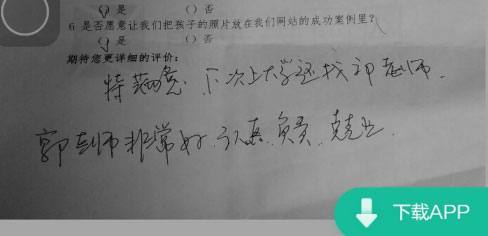 ( ) 是 ( ) 否
6 是否愿意让我们把孩子的照片放在我们网站的成功案例里?
( ) 是 ( ) 否
期待您更详细的评价:
特满意,下次上大学还找郭老师.
郭老师非常好.认真.负责.兢业.
下载APP